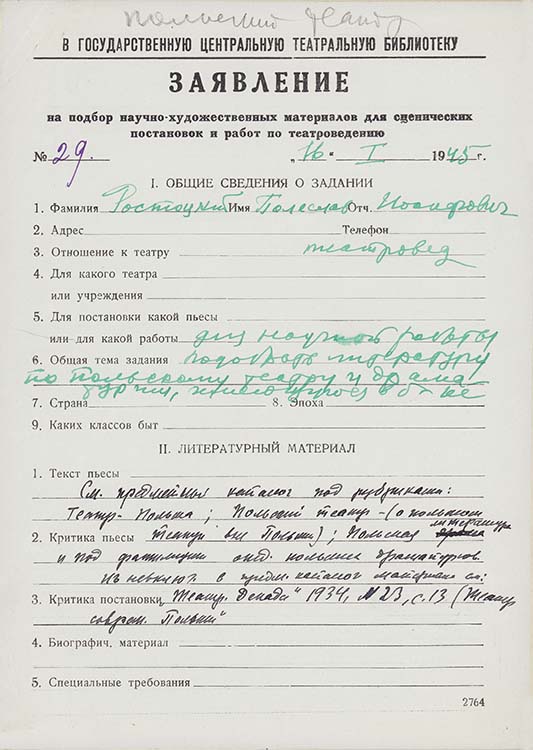 польский театр
В ГОСУДАРСТВЕННУЮ ЦЕНТРАЛЬНУЮ ТЕАТРАЛЬНУЮ БИБЛИОТЕКУ
ЗАЯВЛЕНИЕ
на подбор научно-художественных материалов для сценических
постановок и работ по театроведению
№ 29. „16“ I 1945 г.
I. ОБЩИЕ СВЕДЕНИЯ О ЗАДАНИИ
1. Фамилия Ростоцкий Имя Болеслав Отч. Иосифович
2. Адрес Телефон
3. Отношение к театру театровед
4. Для какого театра
или учреждения
5. Для постановки какой пьесы
или для какой работы для научной работы
6. Общая тема задания подобрать литературу
по польскому театру и драма
тургии, имеющуюся в б-ке
7. Страна 8. Эпоха
9. Каких классов быт
II. ЛИТЕРАТУРНЫЙ МАТЕРИАЛ
1. Текст пьесы
См. предметный каталог под рубриками:
Театр - Польша; Польский театр - (о польском
литература
2. Критика пьесы театре вне Польши); Польская
и под фамилиями отд. польских драматургов.
каталог
3. Критика постановки „Театр. Декада" 1934, №23, с. 13 (Театр
соврем. Польши"
4. Биографич. материал
5. Специальные требования
2764